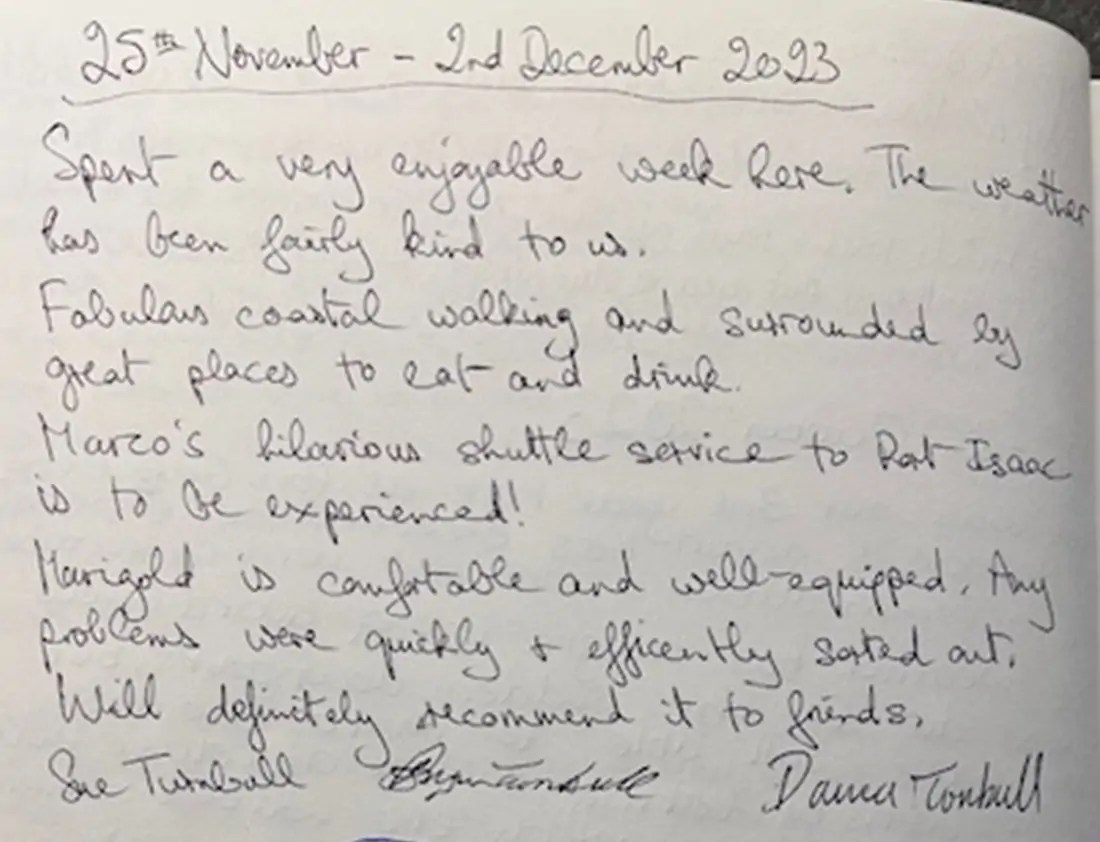 25th November - 2nd December 2023
Spent a very enjoyable week here. The weather
has been fairly kind to us.
Fabulous coastal walking and surrounded by
great places to eat and drink.
Marco's hilarious shuttle service to Port Isaac
is to be experienced!
Marigold is comfortable and well-equipped. Any
problems were quickly + efficently sorted out.
Will definitely recommend it to friends.
Sue Turnbull Turnbull Turnbull